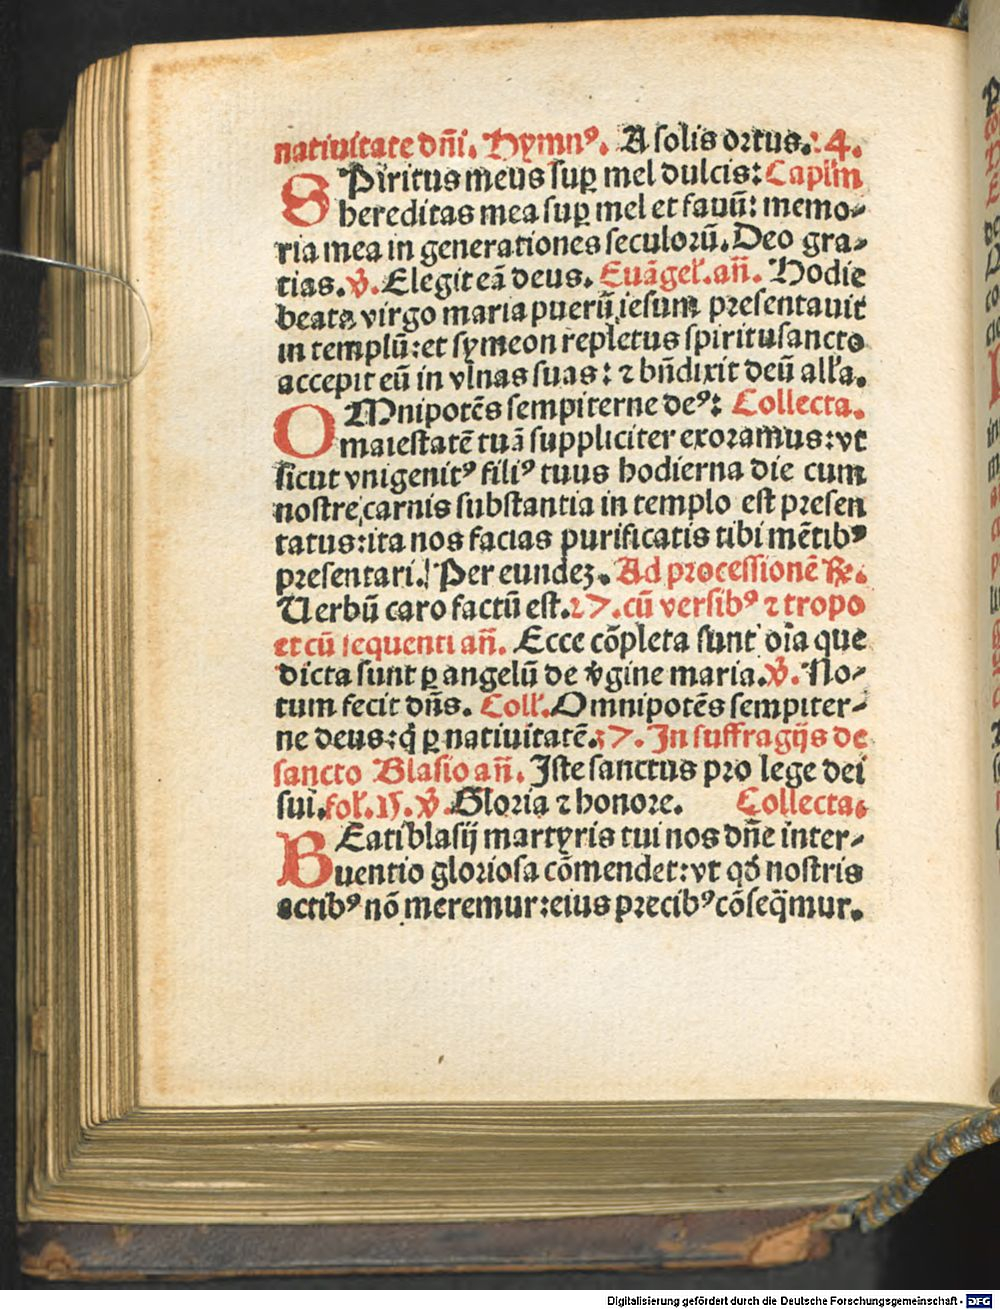 natiuitate dn̄i. Hymnꝰ. A solis ortus. 24.
SPiritus meus suꝑ mel dulcis: Capl'm
hereditas mea suꝑ mel et fauū: memo-
ria mea in generationes seculorū. Deo gra-
tias. v̄. Elegit eā deus. Euāgel'. an̄. Hodie
beata virgo maria puerū iesum presentauit
in templū: et symeon repletus spiritusancto
accepit eū in vlnas suas: ⁊ bn̄dixit deū all'a.
OMnipotēs sempiterne deꝰ: Collecta.
maiestatē tuā suppliciter exoramus: vt
sicut vnigenitꝰ filiꝰ tuus hodierna die cum
nostre carnis substantia in templo est presen
tatus: ita nos facias purificatis tibi mētibꝰ
presentari. Per eundeꝫ. Ad processionē ℞.
Uerbū caro factū est. 27. cū versibꝰ ⁊ tropo
et cū sequenti an̄. Ecce cōpleta sunt oīa que
dicta sunt ꝑ angelū de v̄gine maria. v̄. No-
tum fecit dn̄s. Coll'. Omnipotēs sempiter-
ne deus: q̄ ꝑ natiuitatē. 37. In suffragijs de
sancto Blasio an̄. Iste sanctus pro lege dei
sui. fol'. 15. v̄. Gloria ⁊ honore. Collecta.
BEati blasij martyris tui nos dn̄e inter-
uentio gloriosa cōmendet: vt qd̄ nostris
actibꝰ nō meremur: eius precibꝰ cōseq̄mur.
Digitalisierung gefördert durch die Deutsche Forschungsgemeinschaft - DFG